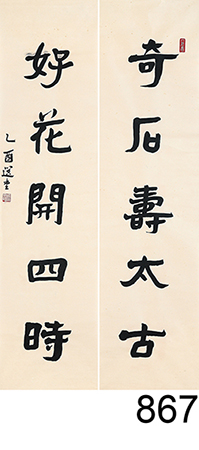 奇石壽太古
好花開四時
乙酉
867